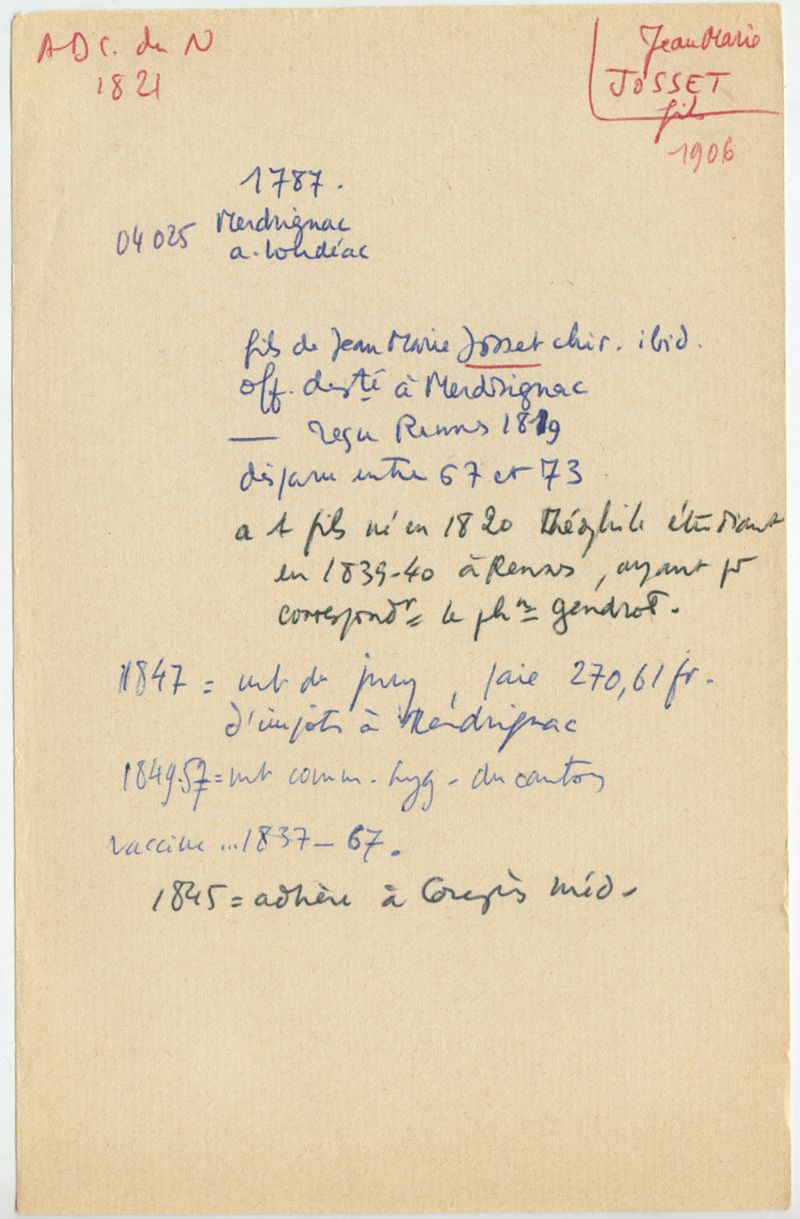 A D C. du N
1821
Jean Marie
JOSSET
fils
1906
1787.
04025 Merdrignac
a. Loudéac
fils de Jean Marie Josset chir. ibid.
off. de sté à Merdrignac
— reçu Rennes 1819
disparu entre 67 et 73
a 1 fils né en 1820 Théophile étudiant
en 1839-40 à Rennes, ayant pr
correspondt le phn Gendrot.
1847 = mb du jury, paie 270,61 fr.
d'impôts à Merdrignac
1849.57 = mb comm. hyg. du canton
vaccine ... 1837 - 67.
1845 = adhère à Congrès méd.